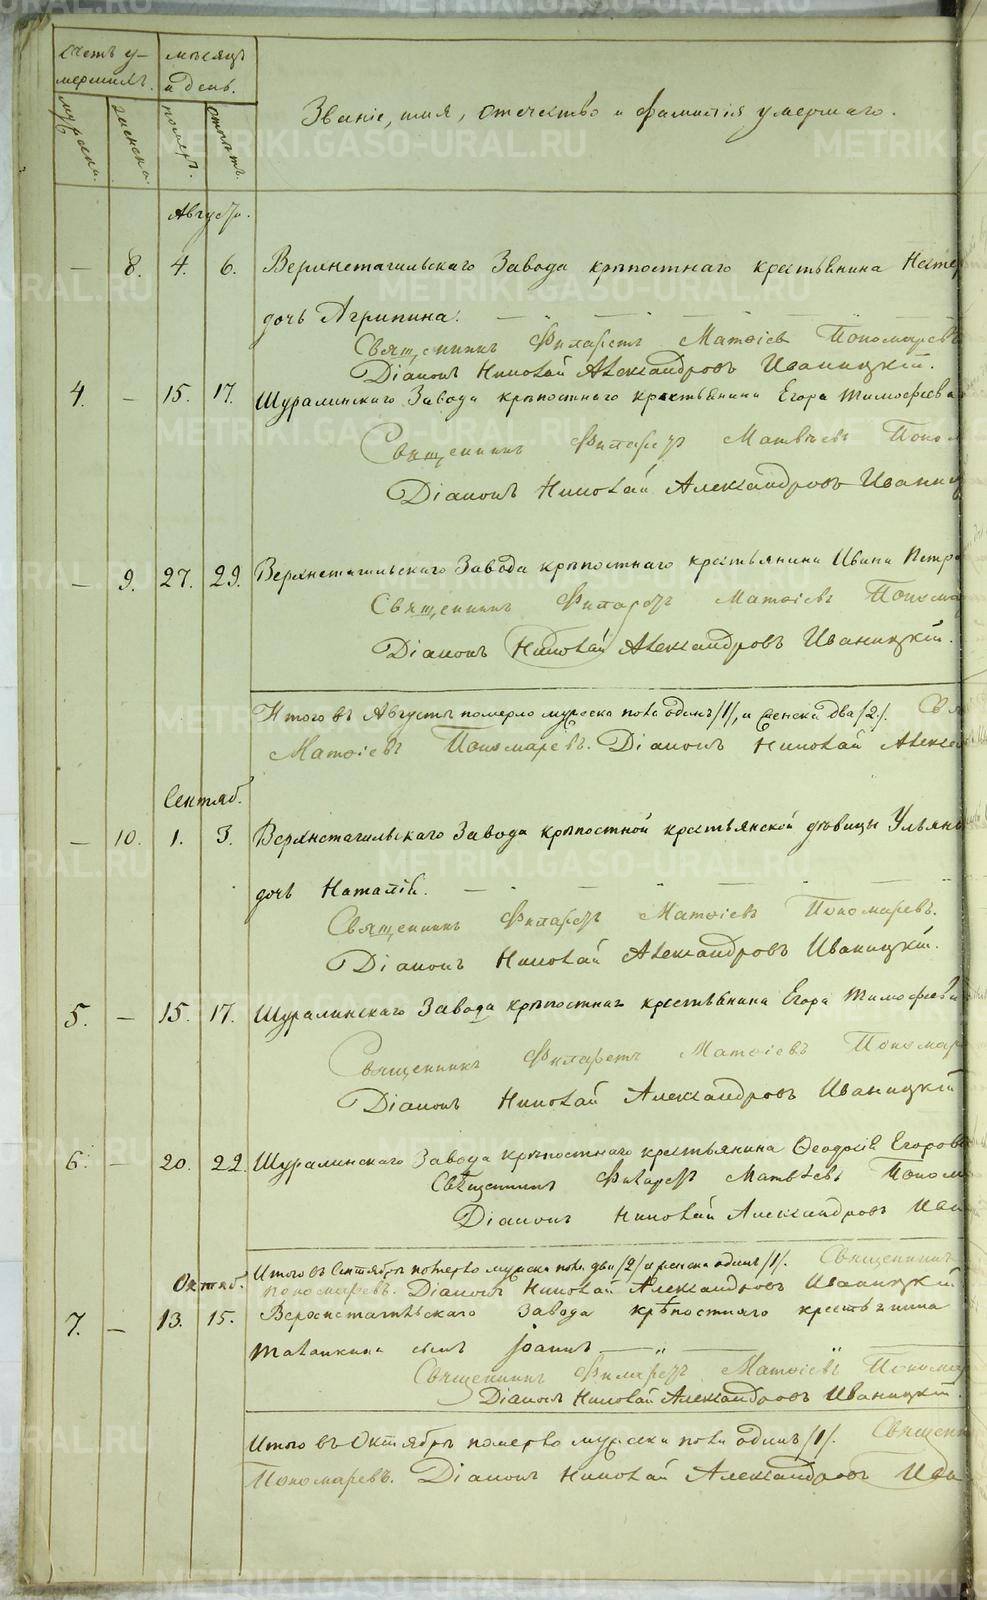 METRIKI.GASO-URAL.RU
Счетъ у-
мершихъ.
мѣсяцъ
и день.
мужска.
женска.
померъ.
отпѣтъ.
Званіе, имя, отчество и фамилія умершаго.
Августъ.
— 8. 4. 6. Верхнетагильскаго Завода крѣпостнаго крестьянина
дочь Агрипина. —
Священникъ Филаретъ Матѳіевъ Пономаревъ
Діаконъ Николай Александровъ Иваницкій.
4. — 15. 17. Шуралинскаго Завода крѣпостнаго крестьянина Егора Тимофеева
Священникъ Филаретъ Матвѣевъ Поном
Діаконъ Николай Александровъ Иваниц
— 9. 27. 29. Верхнетагильскаго Завода крѣпостнаго крестьянина Ивана Петро
Священникъ Филаретъ Матѳіевъ Понома
Діаконъ Николай Александровъ Иваницкій.
Итого въ Августѣ померло мужеска пола одинъ /1/, и женска два /2/. Свя
Матѳіевъ Пономаревъ. Діаконъ Николай Алекса
Сентяб.
— 10. 1. 3. Верхнетагильскаго Завода крѣпостной крестьянской дѣвицы Ульяны
дочь Наталія. —
Священникъ Филаретъ Матѳіевъ Пономаревъ.
Діаконъ Николай Александровъ Иваницкій.
5. — 15. 17. Шуралинскаго Завода крѣпостнаго крестьянина Егора Тимофеева
Священникъ Филаретъ Матѳіевъ Пономар
Діаконъ Николай Александровъ Иваницкій
6. — 20. 22. Шуралинскаго Завода крѣпостнаго крестьянина Ѳеодосія Егорова
Священникъ Филаретъ Матвѣевъ Поном
Діаконъ Николай Александровъ Иван
Итого въ Сентябрѣ померло мужска пола два /2/ и женска одинъ /1/. Священникъ
Пономаревъ. Діаконъ Николай Александровъ Иваницкій
Октяб.
7. — 13. 15. Верхнетагильскаго Завода крѣпостнаго крестьянина
сынъ Іоаннъ — „ —
Священникъ Филаретъ Матѳіевъ Пономар
Діаконъ Николай Александровъ Иваницкій.
Итого въ Октябрѣ померло мужеска пола одинъ /1/. Священн
Пономаревъ. Діаконъ Николай Александровъ Ива